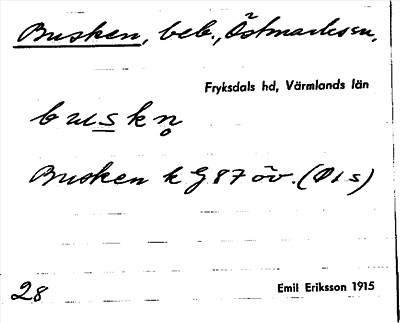 Busken, beb., Östmarks sn,
Fryksdals hd, Värmlands län
b u s k n̥
Busken k G 87 öv. (Ö 1 s)
28
Emil Eriksson 1915